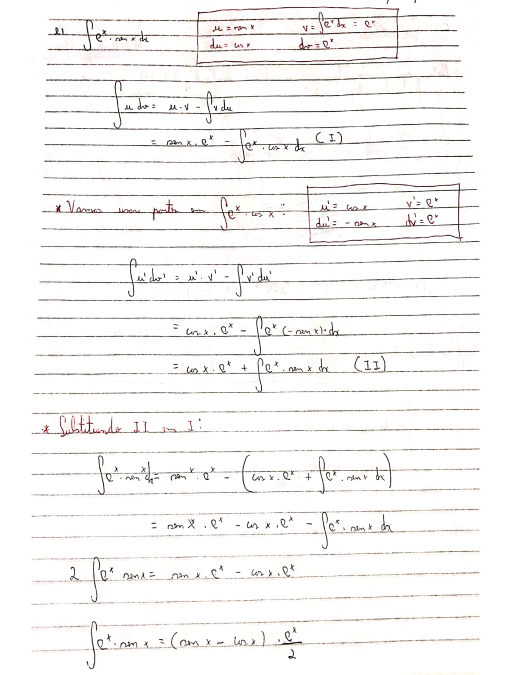 e) ∫ e^x · sen x dx
u = sen x    v = ∫e^x dx = e^x
du = cos x    dv = e^x
∫ u dv = u · v − ∫ v du
= sen x · e^x − ∫ e^x · cos x dx (I)
* Vamos usar partes em ∫ e^x · cos x :
u' = cos x    v' = e^x
du' = − sen x    dv' = e^x
∫ u' dv' = u' · v' − ∫ v' du'
= cos x · e^x − ∫ e^x (− sen x) · dx
= cos x · e^x + ∫ e^x · sen x dx (II)
* Substituindo II em I:
∫ e^x · sen x dx = sen x · e^x − (cos x · e^x + ∫ e^x · sen x dx)
= sen x · e^x − cos x · e^x − ∫ e^x · sen x dx
2 ∫ e^x sen x = sen x · e^x − cos x · e^x
∫ e^x · sen x = (sen x − cos x) · e^x/2